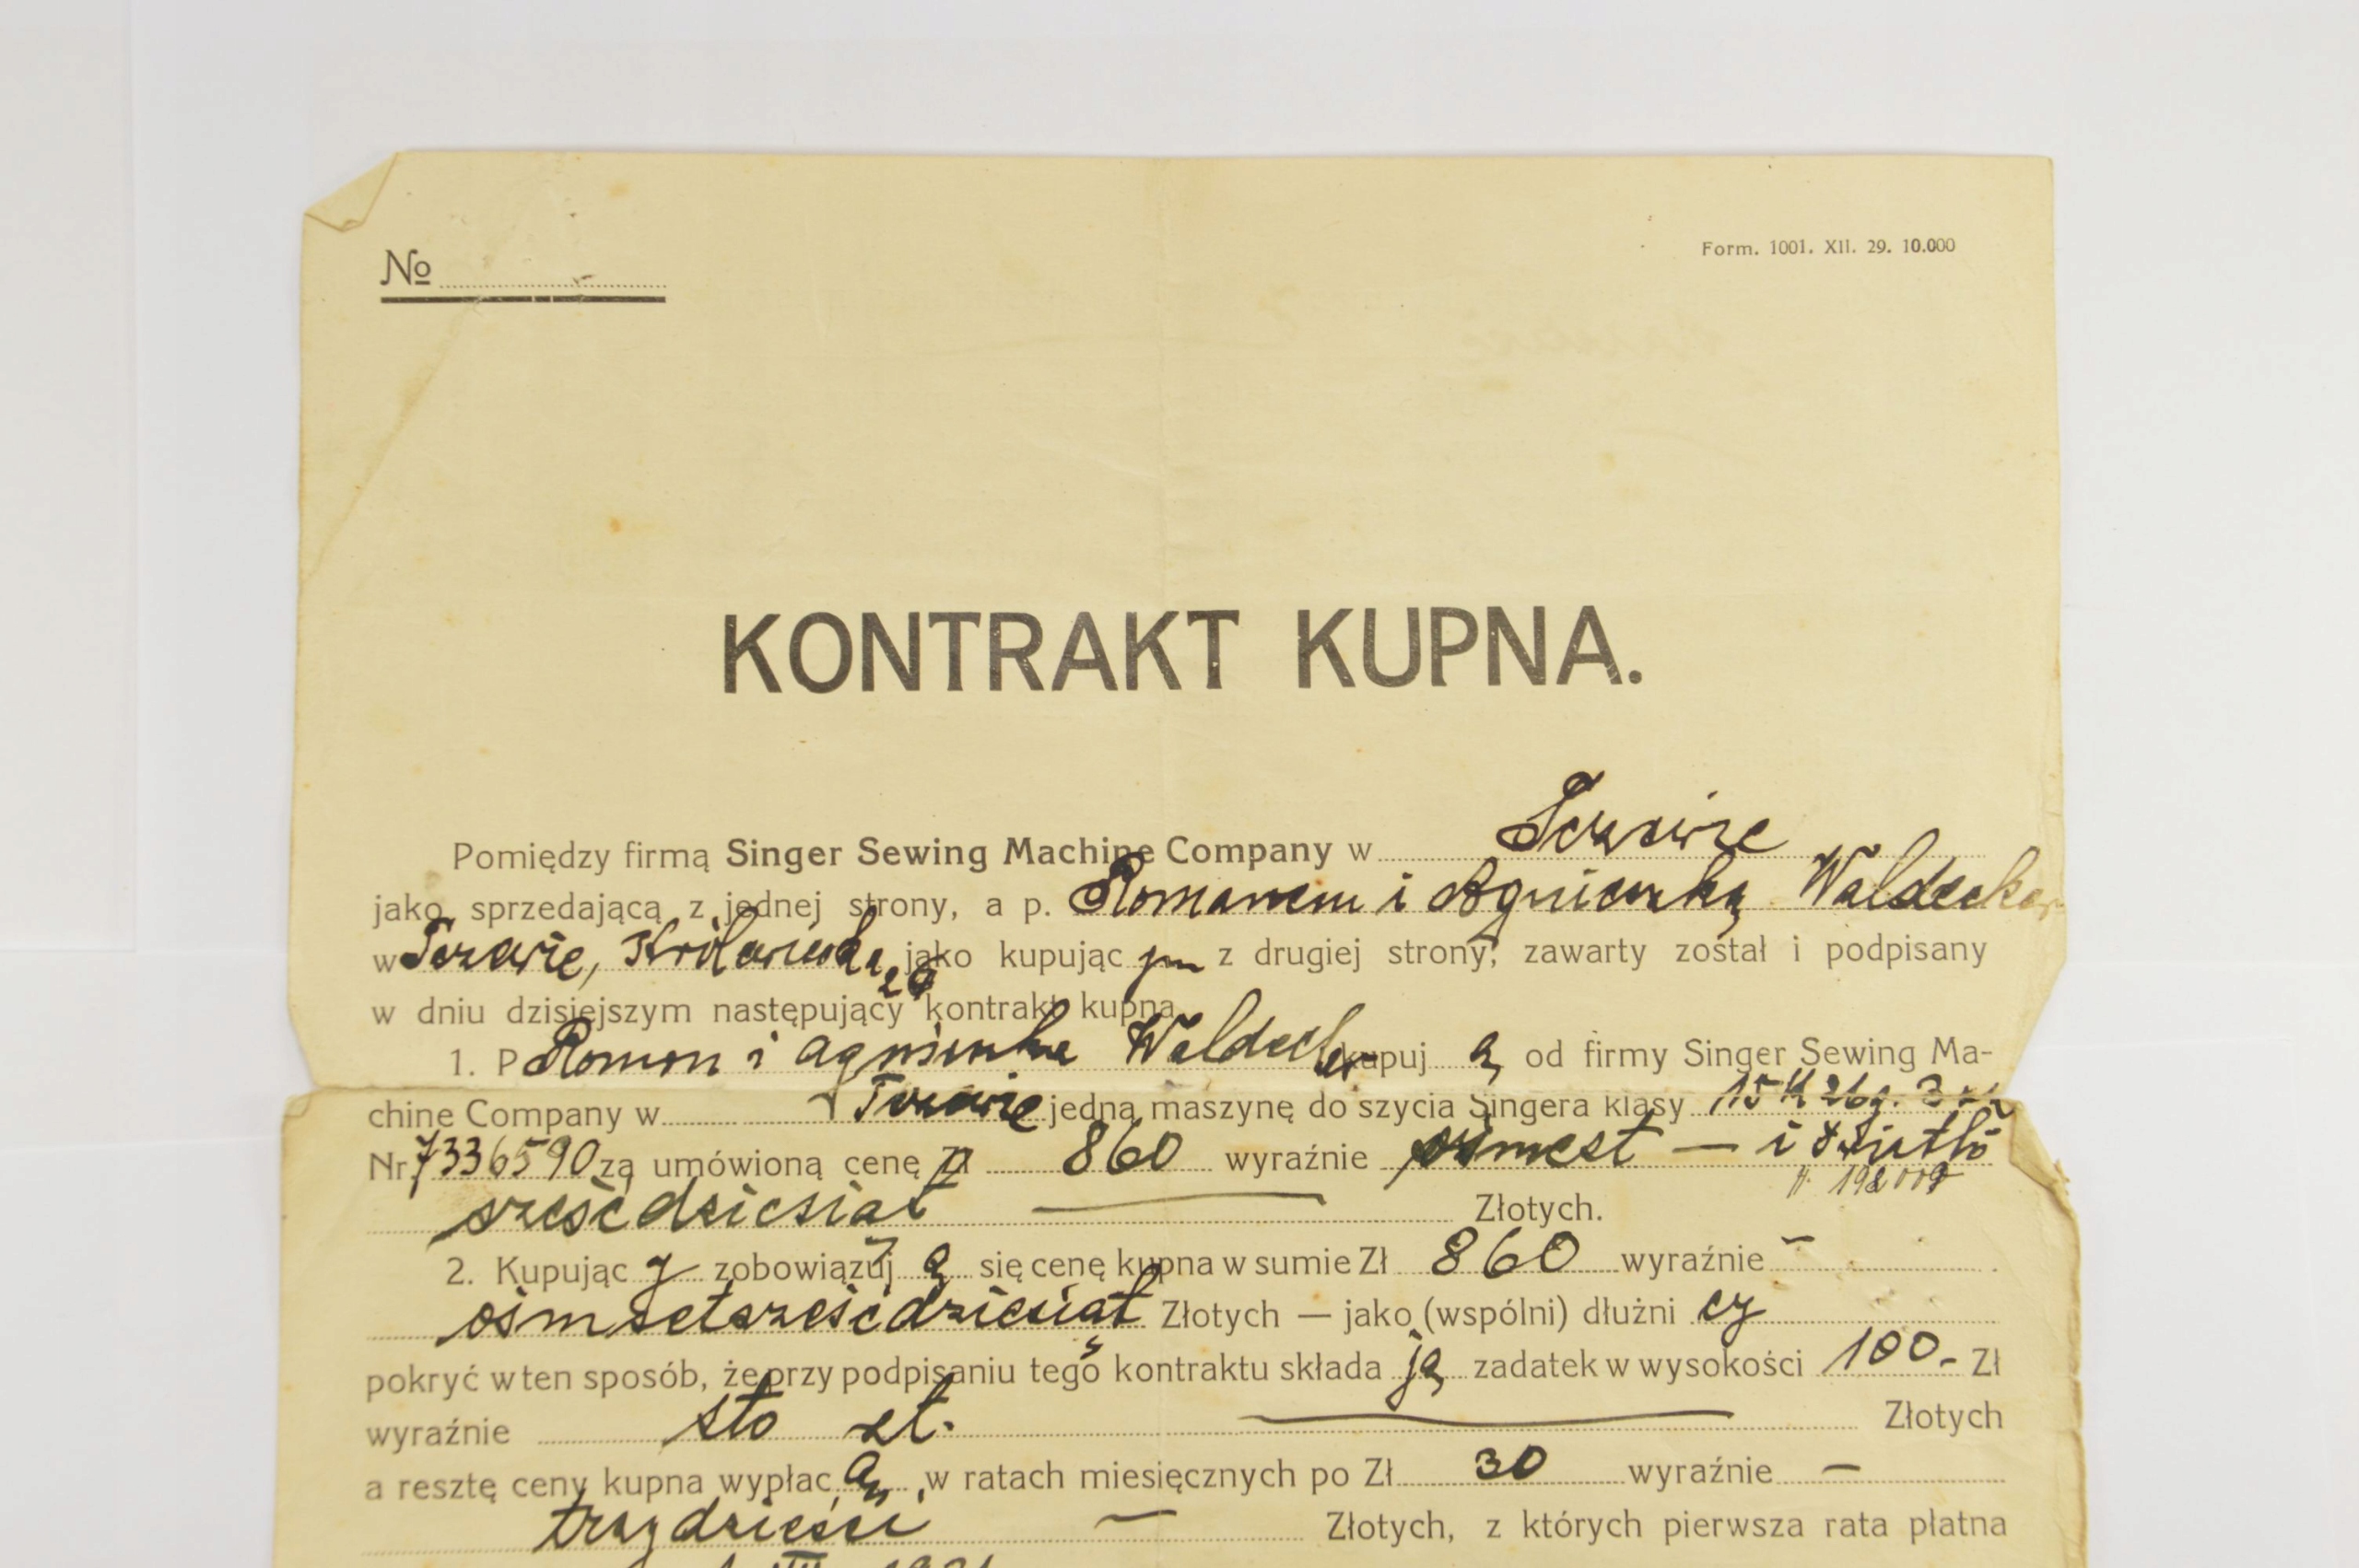 No
Form. 1001. XII. 29. 10.000
KONTRAKT KUPNA.
Pomiędzy firmą Singer Sewing Machine Company w Tczewie
jako sprzedającą z jednej strony, a p. Romanem i Agnieszką Waldecker
w Tczewie, Królewiecka jako kupując z drugiej strony, zawarty został i podpisany
w dniu dzisiejszym następujący kontrakt kupna
1. P Roman i Agnieszka Waldecker kupuj ą od firmy Singer Sewing Ma-
chine Company w Tczewie jedną maszynę do szycia Singera klasy 15 K 26
Nr 7336590 za umówioną cenę Zł 860 wyraźnie ośmset — i światło
sześćdziesiąt — Złotych.
2. Kupując y zobowiązuj ą się cenę kupna w sumie Zł 860 wyraźnie —
ośmsetsześćdziesiąt Złotych — jako (wspólni) dłużni cy
pokryć w ten sposób, że przy podpisaniu tego kontraktu składa ją zadatek w wysokości 100.- Zł
wyraźnie sto zł. — Złotych
a resztę ceny kupna wypłac ą w ratach miesięcznych po Zł 30 wyraźnie —
trzydzieści — Złotych, z których pierwsza rata płatna